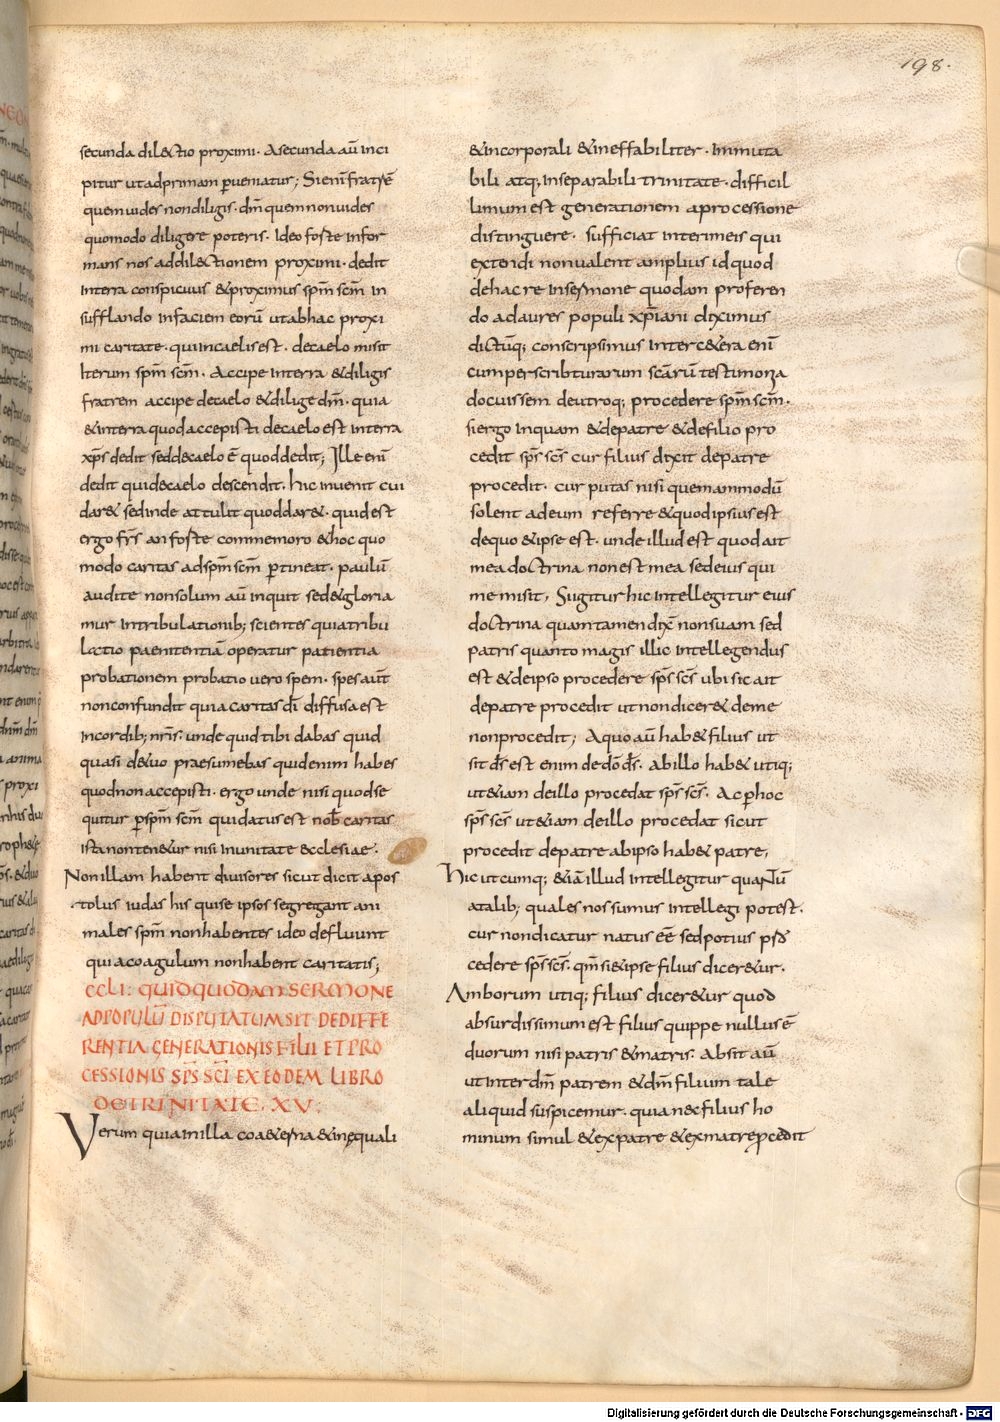 198.
secunda dilectio proximi. A secunda aū inci
pitur ut ad primam ꝑueniatur; Si enī fratrē
quem uides non diligis. dm̄ quem non uides
quomodo diligere poteris. Ideo forte infor
mans nos ad dilectionem proximi. dedit
in terra conspicuus & proximus spm̄ scm̄ in
sufflando in faciem eorū ut ab hac proxi
mi caritate. qui in caelis est. de caelo misit
Iterum spm̄ scm̄. Accipe in terra & diligis
fratrem accipe de caelo & dilige dm̄. quia
& in terra quod accepisti de caelo est in terra
xp̄s dedit sed de caelo ē quod dedit; Ille enī
dedit qui de caelo descendit. hic inuenit cui
dar& sed inde attulit quod dar&. quid est
ergo frs̄ an forte commemoro & hoc quo
modo caritas ad spm̄ scm̄ ꝑtineat. paulū
audite non solum aū inquit sed & gloria
mur in tribulationib; scientes quia tribu
lactio paenitentiā operatur patientia
probationem probatio uero spem. spes aūt
non confundit quia caritas dī diffusa est
in cordib; nr̄is. unde quid tibi dabas quid
quasi de tuo praesumebas quid enim habes
quod non accepisti. ergo unde nisi quod se
quitur ꝑ spm̄ scm̄ qui datus est nob̄ caritas
ista non ten&ur nisi in unitate ecclesiae.
Non illam habent diuisores sicut dicit apos
tolus iudas his qui se ipsos segregant ani
males spm̄ non habentes ideo defluunt
quia coagulum non habent caritatis;
CCLI: QUID QUODAM SERMONE
AD POPULŪ DISPUTATUM SIT DE DIFFE
RENTIA GENERATIONIS FILII ET PRO
CESSIONIS SPS̄ SCĪ EX EODEM LIBRO
DE TRINITATE. XV:
Verum quia in illa coaeterna & inequali
& incorporali & ineffabiliter. Inmuta
bili atq; inseparabili trinitate. difficil
limum est generationem a processione
distinguere. sufficiat interim eis qui
extendi non ualent amplius id quod
de hac re in sermone quodam proferen
do ad aures populi xp̄iani diximus
dictūq; conscripsimus Inter c&era enī
cum per scribturarum scārū testimonia
docuissem de utroq; procedere spm̄ scm̄.
si ergo inquam & de patre & de filio pro
cedit sps̄ scs̄ cur filius dixit de patre
procedit. cur putas nisi quemammodū
solent ad eum referre & quod ipsius est
de quo & ipse est. unde illud est quod ait
mea doctrina non est mea sed eius qui
me misit, Si igitur hic intellegitur eius
doctrina quam tamen dix̄ non suam sed
patris quanto magis illic intellegendus
est & de ipso procedere sps̄ scs̄ ubi sic ait
de patre procedit ut non dicer& de me
non procedit; A quo aū hab& filius ut
sit ds̄ est enim de dō ds̄. Ab illo hab& utiq;
ut &iam de illo procedat sps̄ scs̄. Ac ꝑ hoc
sps̄ scs̄ ut &iam de illo procedat sicut
procedit de patre ab ipso hab& patre,
Hic utcumq; &iā illud intellegitur quantū
a talib; quales nos sumus intellegi potest.
cur non dicatur natus eē sed potius pro
cedere sps̄ scs̄. qm̄ si & ipse filius dicer&ur.
Amborum utiq; filius dicer&ur quod
absurdissimum est filius quippe nullus ē
duorum nisi patris & matris. Absit aū
ut inter dm̄ patrem & dm̄ filium tale
aliquid suspicemur. quia nec filius ho
minum simul & ex patre & ex matre procedit
Digitalisierung gefördert durch die Deutsche Forschungsgemeinschaft - DFG